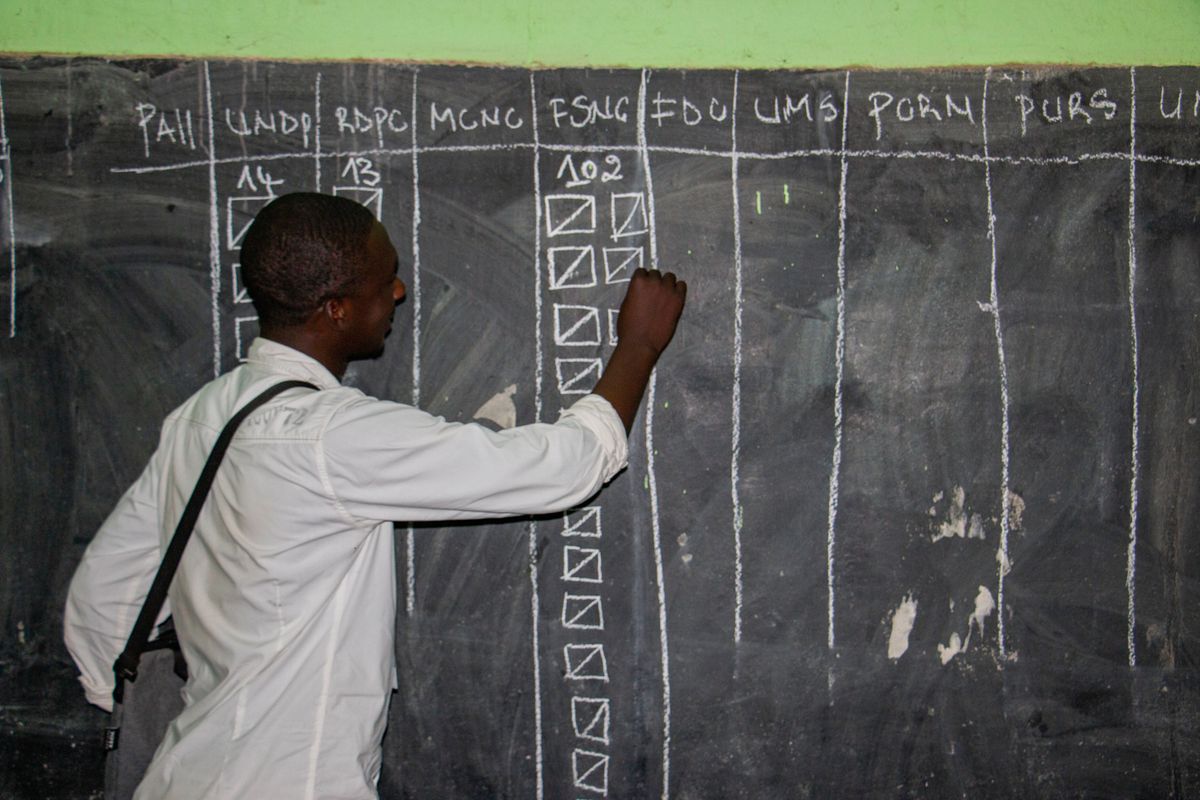 PAll UNDP RDPC MCNC FSNC FDC UMS PCRM PURS
14 13 102